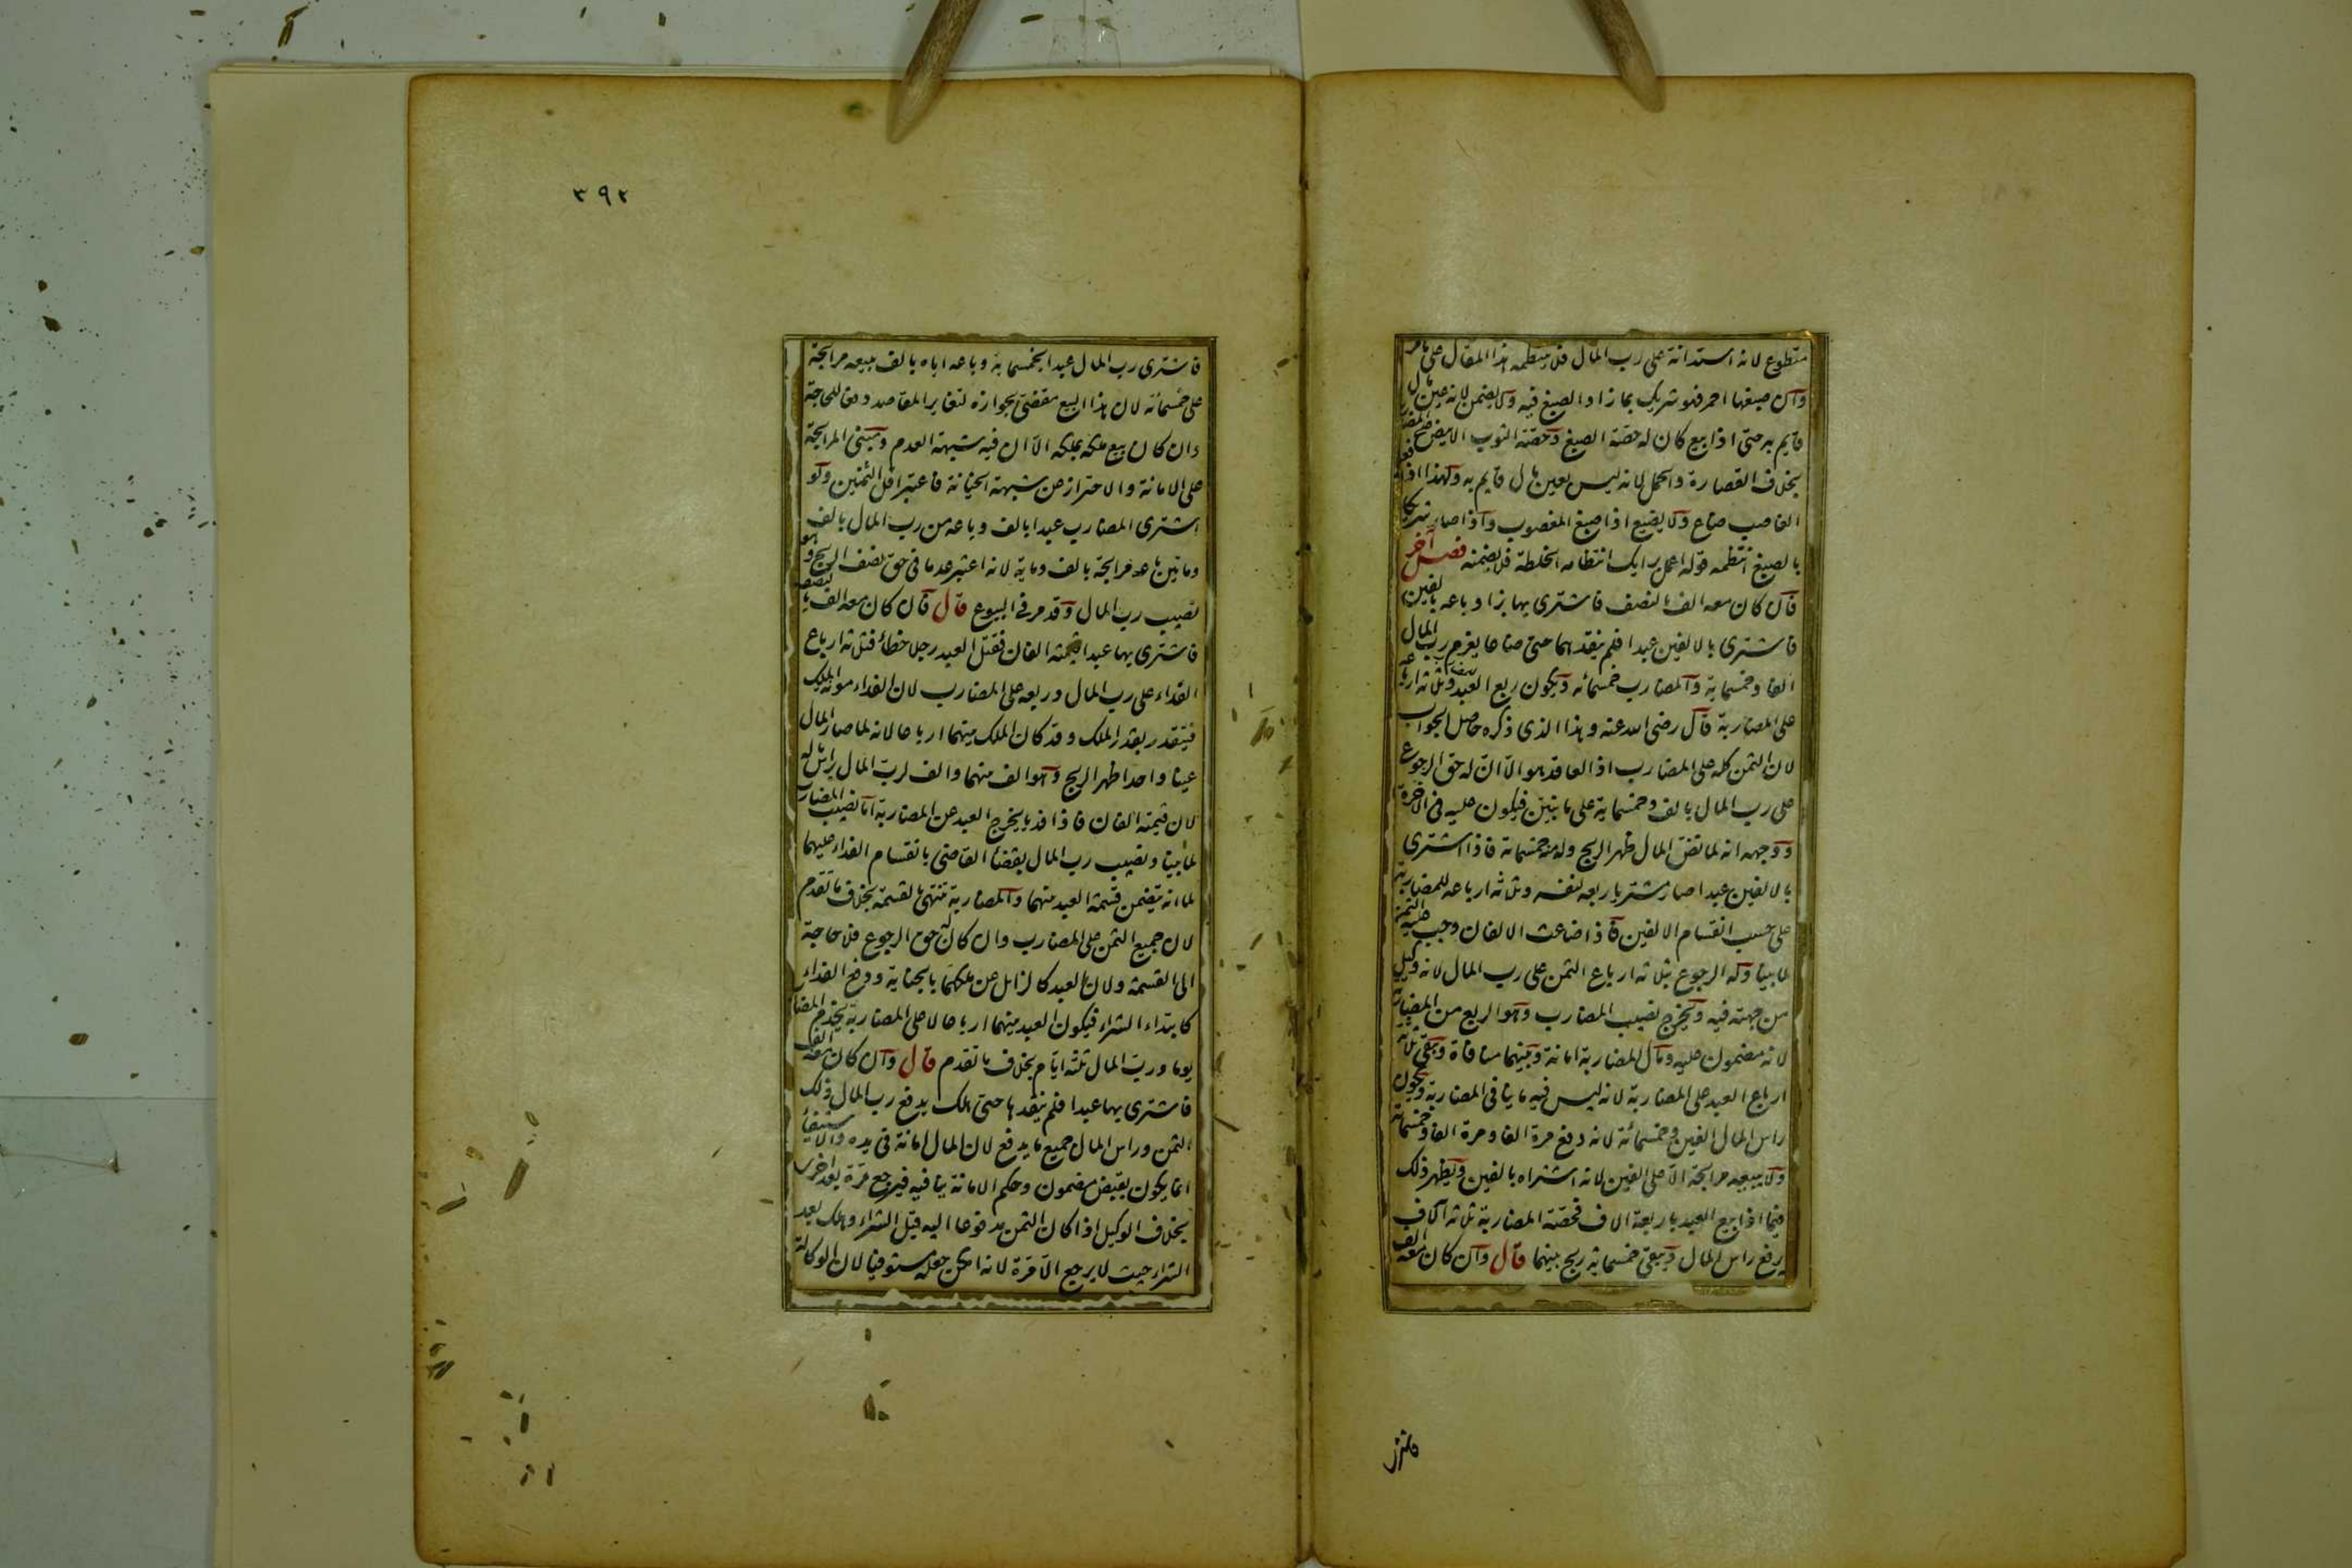 متطوع لانه استدانة على رب المال فلا ينتظمه هذا المقال على ما مر
وان صبغها احمر فهو شريك بما زاد الصبغ فيه ولا يضمن لانه عين مال
قايم به حتى اذا بيع كان له حصة الصبغ وحصة الثوب الابيض على المضاربة
بخلاف القصارة والحمل لانه ليس بعين مال قايم به ولهذا اذا فعله
الغاصب ضاع ولا يضيع اذا صبغ المغصوب واذا صار شريكا
بالصبغ انتظمه قوله اعمل برايك انتظامه الخلطة فلا يضمنه فصل آخر
قال كان معه الف بالنصف فاشترى بها بزا وباعه بالفين
فاشترى بالالفين عبدا فلم ينقدهما حتى ضاعا يغرم رب المال
الفا وخمسماية والمضارب خمسمائه ويكون ربع العبد للمضارب وثلاثه ارباعه
على المضاربة قال رضى الله عنه وهذا الذى ذكره حاصل الجواب
لان الثمن كله على المضارب اذ العاقد هو الا ان له حق الرجوع
على رب المال بالف وخمسماية على ما نبين فيكون عليه فى الاخرة
ووجهه انه لما نض المال ظهر الربح وله منه خمسماية فاذا اشترى
بالالفين عبدا صار مشتريا ربعه لنفسه وثلاثه ارباعه للمضاربة
على حسب انقسام الالفين فاذا ضاعت الالفان وجب عليه الثمن
لما بينا وله الرجوع بثلاثه ارباع الثمن على رب المال لانه وكيل
من جهته فيه ويخرج نصيب المضارب وهو الربع من المضاربة
لانه مضمون عليه ومال المضاربة امانة وبينهما منافاة ويبقى ثلاثة
ارباع العبد على المضاربة لانه ليس فيه ما ينافى المضاربة ويكون
راس المال الفين وخمسمائة لانه دفع مرة الفا ومرة الفا وخمسماية
ولا يبيعه مرابحة الا على الفين لانه اشتراه بالفين ويظهر ذلك
فيما اذا بيع العبد باربعة الاف فحصة المضاربة ثلاثه آلاف
يرفع راس المال ويبقى خمسماية ربح بينهما قال وان كان معه الف
فاشترى
٣٩٢
فاشترى رب المال عبدا بخمسماية وباعه اياه بالف يبيعه مرابحة
على خمسمائة لان هذا البيع مقضى بجوازه لتغاير المقاصد دفعا للحاجة
وان كان بيع ملكه بملكه الا ان فيه شبهة العدم ومبنى المرابحة
على الامانة والاحتراز عن شبهة الخيانة فاعتبر اقل الثمنين ولو
اشترى المضارب عبدا بالف وباعه من رب المال بالف
ومائتين باعه مرابحة بالف وماية لانه اعتبر عدما فى حق نصف الربح وهو
نصيب رب المال وقد مر فى البيوع قال قان كان معه الف بالنصف
فاشترى بها عبدا قيمته الفان فقتل العبد رجلا خطأ فثلاثه ارباع
الفداء على رب المال وربعه على المضارب لان الفداء مونة الملك
فيتقدر بقدر الملك وقد كان الملك بينهما ارباعا لانه لما صار المال
عينا واحدا ظهر الربح وهو الف منهما والف لرب المال براس ماله
لان قيمته الفان فاذا فديا يخرج العبد عن المضاربة اما نصيب المضارب
لما بينا ونصيب رب المال بقضا القاضى بانقسام الفداء عليهما
لما انه يتضمن قسمة العبد منهما والمضاربة تنتهى بالقسمة بخلاف ما تقدم
لان جميع الثمن على المضارب وان كان له حق الرجوع فلا حاجة
الى القسمة ولان العبد كالزايل عن ملكهما بالجناية ودفع الفداء
كابتداء الشراء فيكون العبد بينهما ارباعا لا على المضاربة يخدم المضارب
يوما ورب المال ثلثة ايام بخلاف ما تقدم قال وان كان معه الف
فاشترى بها عبدا فلم ينقدها حتى هلك يدفع رب المال ذلك
الثمن وراس المال جميع ما يدفع لان المال امانة فى يده والاستيفاء
انما يكون بقبض مضمون وحكم الامانة ينافيه فيرجع مرة بعد اخرى
بخلاف الوكيل اذا كان الثمن مدفوعا اليه قبل الشراء وهلك بعد
الشراء حيث لا يرجع الا مرة لانه امكن جعله مستوفيا لان الوكالة